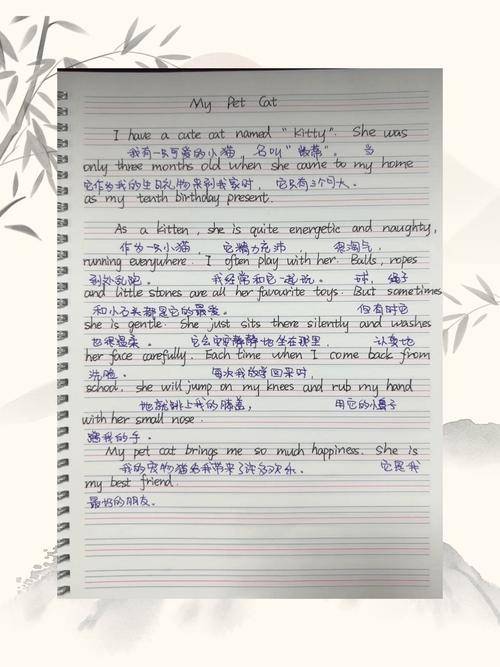 My Pet Cat
I have a cute cat named "Kitty". She was
我有一只可爱的小猫,名叫"凯蒂"。当
only three months old when she came to my home
它作为我的生日礼物来到我家时,它只有3个月大。
as my tenth birthday present.
As a kitten, she is quite energetic and naughty,
作为一只小猫,它精力充沛,很淘气,
running everywhere. I often play with her. Balls, ropes
到处乱跑。我经常和它一起玩。球,绳子
and little stones are all her favourite toys. But sometimes
和小石头都是它的最爱。但有时它
she is gentle. She just sits there silently and washes
也很温柔。它会静静地坐在那里,认真地
her face carefully. Each time when I come back from
洗脸。每次我放学回来时,
school, she will jump on my knees and rub my hand
她就跳上我的膝盖,用它的小鼻子
with her small nose.
蹭我的手。
My pet cat brings me so much happiness. She is
我的宠物猫给我带来了许多欢乐。它是我
my best friend.
最好的朋友。